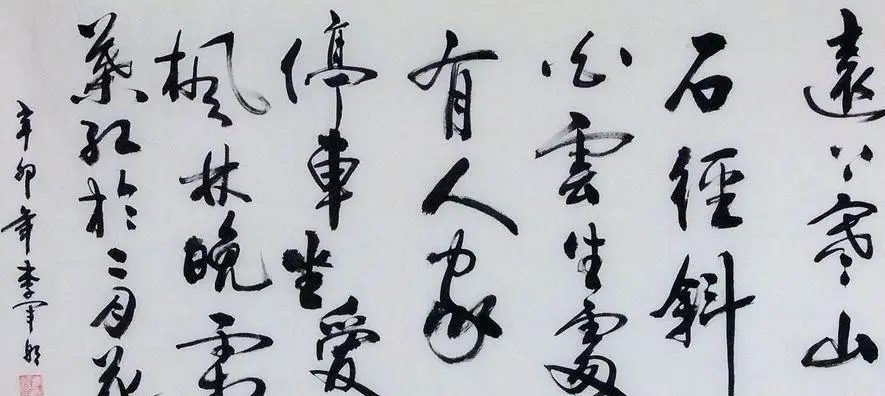 遠上寒山
石徑斜
白雲生處
有人家
停車坐愛
楓林晚霜
葉紅於二月花
辛卯年李军